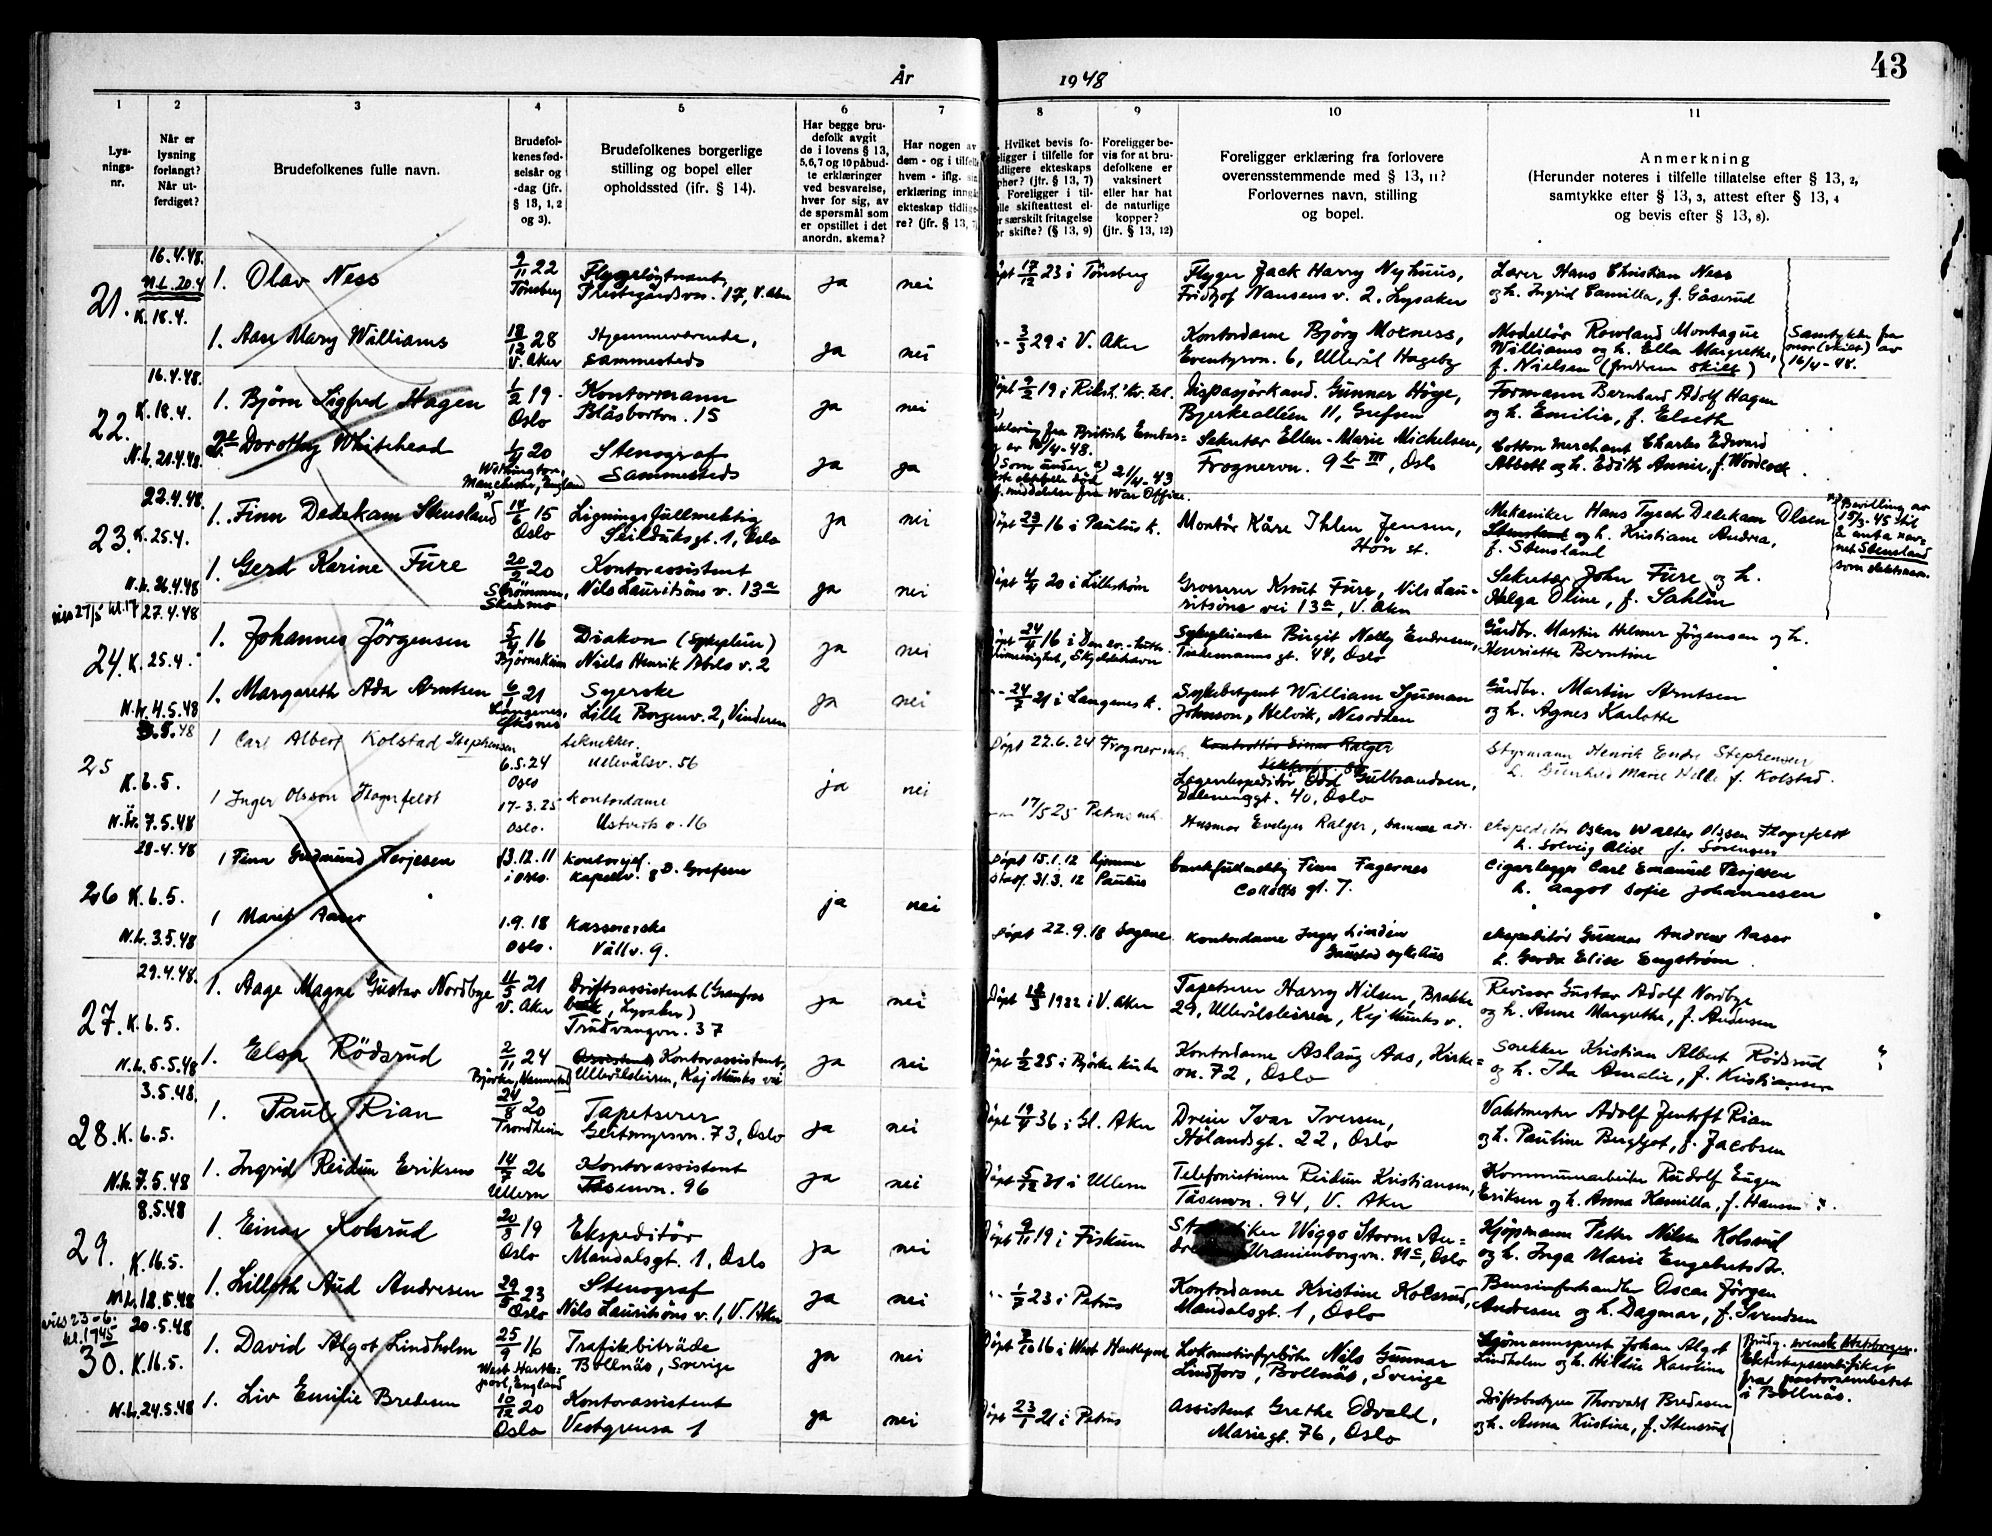 43
År 1948
1 2 3 4 5 6 7 8 9 10 11
Lys-
nings-
nr.
Når er
lysning
forlangt?
Når ut-
ferdiget?
Brudefolkenes fulle navn.
Brudefol-
kenes fød-
selsår og
-dag (jfr.
§ 13, 1, 2
og 3).
Brudefolkenes borgerlige
stilling og bopel eller
opholdssted (ifr. § 14).
Har begge bru-
defolk avgit
de i lovens § 13,
5, 6, 7 og 10 påbud-
te erklæringer
ved besvarelse,
hver for sig, av
de spørsmål som
er opstillet i det
anordn. skema?
Har nogen av
dem - og i tilfelle
hvem - iflg. sin
erklæring inngåt
ekteskap tidlige-
re? (jfr. § 13, 7)
Hvilket bevis fo-
religger i tilfelle for
tidligere ekteskaps
ophør? (jfr. § 13, 7)
Foreligger i til-
felle skifteattest el-
ler særskilt fritagelse
for skifte? (§ 13, 9)
Foreligger be-
vis for at bru-
defolkene er
vaksinert
eller har hat
de naturlige
kopper?
(jfr. § 13, 12)
Foreligger erklæring fra forlovere
overensstemmende med § 13, 11?
Forlovernes navn, stilling
og bopel.
Anmerkning
(Herunder noteres i tilfelle tillatelse efter § 13, 2,
samtykke efter § 13, 3, attest efter § 13, 4
og bevis efter § 13, 8).
21. 16.4.48. N.L. 20.4 K. 18.4.
1. Olav Ness 9/11 22 Tönsberg Flygelöytnant, 17, V. Aker ja nei
Döpt 17/12 23 i Tönsberg Flyger Jack Harry Nyhuus, Fridtjof Nansens v. 2, Lysaker
Lærer Hans Christian Ness og h. Ingrid Camilla, f. Gåserud
1. Aase Mary Williams 18/12 28 V. Aker Hjemmeværende, sammesteds ja nei
3/3 29 i V. Aker Kontordame Björg Moxness, Eventyrvn. 6, Ullevål Hageby
Modellör Rowland Montague Williams og h. Ella Margrethe, f. Nielsen (foreldrene skilt)
Samtykke fra mor (skilt) av 16/4-48.
22. 16.4.48. K. 18.4. N.L. 21.4.48.
1. Björn Sigfred Hagen 1/2 19 Oslo Kontormann Blåsbortvn. 15 ja nei
Döpt 9/2 19 i Gunnar Höge, Bjerkealléen 11, Grefsen
Formann Bernhard Adolf Hagen og h. Emilie, f. Elseth
2. Dorothy Whitehead 20 Withington, Manchester, England Stenograf Sammesteds ja ja
Erklæring fra British Embas- 21/4-43 War Office.
Sekretær Ellen-Marie Michelsen, Frognervn. 9 b III, Oslo
Cotton merchant Charles Edward Abbott og h. Edith Annie, f. Woodcock
23. 22.4.48. K. 25.4. N.L. 26.4.48
1. Finn Dedekam Stensland 14/6 15 Oslo Ligningsfullmektig Seilduksgt. 1, Oslo ja nei
Döpt 16 i Paulus k. Montör Kåre Ihlen Jensen, Hön st.
Mekaniker Hans Tyrch Dedekam Olsen og h. Kristiane Andrea, f. Stensland
Bevilling av 15/3-45 til å anta navnet Stensland som slektsnavn.
1. Gerd Karine Fure 20/2 20 Strömmen, Skedsmo Kontorassistent Nils Lauritsöns v. 13a ja nei
Döpt 4/4 20 i Lilleström Grosserer Knut Fure, Nils Lauritsöns vei 13a, V. Aker
Sekretær John Fure og h. Helga Oline, f. Sahlin
24. 27.4.48 K. 25.4. N.L. 4.5.48
1. Johannes Jörgensen 5/4 16 Björnskinn Diakon (Sykepleier) Niels Henrik Abels v. 2 ja nei
Döpt 24/4 16 i Sykepleierske Birgit Nelly Endresen, Tidemanns gt. 44, Oslo
Gårdbr. Martin Helmer Jörgensen og h. Henriette Berntine
1. Margareth Ada Arntsen 6/1 21 Langenes, Öksnes Syerske Lille Borgenv. 2, Vinderen ja nei
21 i Langenes k. William Johnson, Helvik, Nesodden
Gårdbr. Martin Arntsen og h. Agnes Karlotte
25 K. 6.5. 7.5.48
1 Carl Albert Kolstad Stephensen 6.5.24 Oslo tekniker. Ullevålsv. 56 ja nei
Döpt 22.6.24 Frogner Lagerekspeditör Odd Gulbrandsen, 40, Oslo
Styrmann Henrik Endre Stephensen h. Gunhild Marie Helle f. Kolstad.
1 Inger Olsson Hagnfeldt 17-3.25 Oslo. kontordame Ustveits v. 16
17/5 25 Petrus Husmor Evelyn Ralger, samme adr.
ekspeditör Oskar Walter Olsson Hagnfeldt h. Solveig Alise f. Sörensen
26 28-4.48 K. 6.5. N.L. 3.5.48
1 Finn Gudmund Terjesen 13.12.11 i Oslo. kontorsjef. Kapellv. 8D. Grefsen ja nei
Döpt 15.1.12 hjemme stadf. 31.3.12 Paulus bankfullmektig Finn Fagernes Colletts gt. 7.
Cigarlegger Carl Emanuel Terjesen h. Aagot Sofie Johannesen
1 Marit Aaser 1.9.18 Oslo. Kassererske Vallv. 9.
Döpt 22.9.18 Sagene Kontordame Inger Linden Gaustad sykehus
ekspeditör Gunnar Andreas Aaser h. Gerda Elise Engström.
27. 29.4.48. K. 6.5. N.L. 5.5.48
1. Aage Magne Gustav Nordbye 11/5 21 V. Aker Driftsassistent (Granfos Bruk, Lysaker) Trudvangvn. 37 ja nei
Döpt 1922 i V. Aker Tapetserer Harry Nilsen, Brakke 29, Ullevålsleiren, Kaj Munks v.
Revisor Gustav Adolf Nordbye og h. Anne Margrethe, f. Andersen
1. Elsa Rödsrud 2/11 24 Kontorassistent, Ullevålsleiren, Kaj Munks vei ja nei
Döpt 1/2 25 i Björke kirke Kontordame Aslaug Aas, Kirkevn. 72, Oslo
Snekker Kristian Albert Rödsrud og h. Ida Amalie, f. Kristiansen
28. 3.5.48. K. 6.5. N.L. 7.5.48
1. Paul Rian 24/8 20 Trondheim Tapetserer Geitmyrsvn. 73, Oslo ja nei
Döpt 36 i Gl. Aker Dreier Ivar Iversen, Hölandsgt. 22, Oslo
Vaktmester Adolf Jentoft Rian og h. Pauline Bergljot, f. Jacobsen
1. Ingrid Reidun Eriksen 14/7 26 Ullern Kontorassistent Tåsenvn. 96 ja nei
Döpt 5/12 31 i Ullern Telefonistinne Reidun Kristiansen, Tåsenvn. 94, V. Aker
Kommunearbeider Rudolf Eugen Eriksen og h. Anna Kamilla, f. Hansen
29. 8.5.48 K. 16.5. N.L. 18.5.48
1. Einar Kolsrud 20/3 19 Oslo Ekspeditör Mandalsgt. 1, Oslo ja nei
Döpt 9/11 19 i Fiskum Wiggo Storm Uranienborgvn. 11c, Oslo
Kjöpmann Petter Nilsen Kolsrud og h. Inga Marie Engebretsdtr.
1. Lilleth Aud Andresen 29/5 23 Oslo Stenograf Nils Lauritsöns v. 1, V. Aker ja nei
1/7 23 i Petrus Kontordame Kristine Kolsrud, Mandalsgt. 1, Oslo
Bensinforhandler Oscar Jörgen Andresen og h. Dagmar, f. Svendsen
vies 23-6. kl. 1745
30. 20.5.48 K. 16.5. N.L. 24.5.48
1. David Algot Lindholm 25/9 16 West Hartlepool, England Trafikbiträde Bollnäs, Sverige ja nei
Döpt 16 i West Hartlepool Nils Gunnar Lindfors, Bollnäs, Sverige
Sjömannsprest Johan Algot Lindholm og h. Hildur Karolina
Brudg. svensk statsborger. fra pastorsembetet i Bollnäs.
1. Liv Emilie Bredesen 10/12 20 Oslo Kontorassistent Vestgrensa 1 ja nei
Döpt 23/1 21 i Petrus Assistent Grethe Odvald, Mariegt. 76, Oslo
Driftsbestyrer Thorvald Bredesen og h. Anna Kristine, f. Stensrud